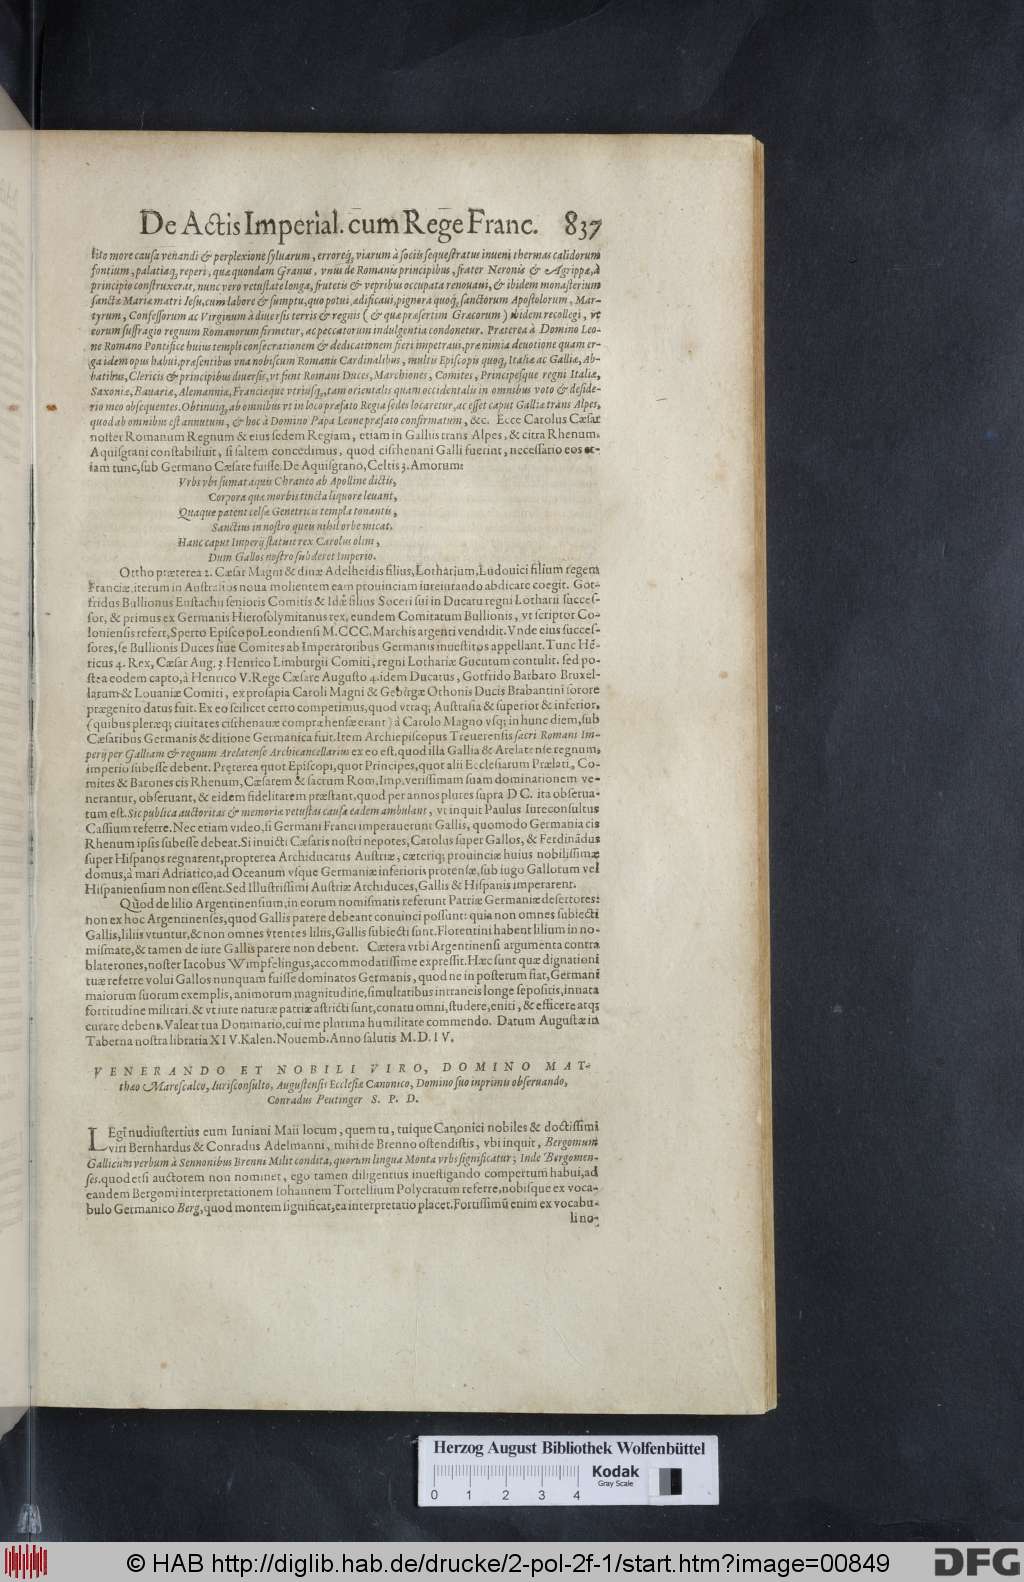 De Actis Imperial. cum Rege Franc. 837
lito more causa venandi & perplexione syluarum, erroreq́, viarum à sociis sequestratus inueni thermas calidorum
fontium, palatiaq́, reperi, quæ quondam Granus, vnus de Romanis principibus, frater Neronis & Agrippæ, à
principio construxerat, nunc vero vetustate longa, frutetis & vepribus occupata renouaui, & ibidem monasterium
sanctæ Mariæ matri Iesu, cum labore & sumptu, quo potui, ædificaui, pignora quoq́, sanctorum Apostolorum, Mar-
tyrum, Confessorum ac Virginum à diuersis terris & regnis (& quæ præsertim Græcorum) ibidem recollegi, vt
eorum suffragio regnum Romanorum firmetur, ac peccatorum indulgentia condonetur. Præterea à Domino Leo-
ne Romano Pontifice huius templi consecrationem & dedicationem fieri impetraui, præ nimia deuotione quam er-
ga idem opus habui, præsentibus vna nobiscum Romanis Cardinalibus, multis Episcopis quoq́, Italiæ ac Galliæ, Ab-
batibus, Clericis & principibus diuersis, vt sunt Romani Duces, Marchiones, Comites, Principesque regni Italiæ,
Saxoniæ, Bauariæ, Alemanniæ, Franciæque vtriusq́,, tam orientalis quam occidentalis in omnibus voto & deside-
rio meo obsequentes. Obtinuiq́, ab omnibus vt in loco præfato Regia sedes locaretur, ac esset caput Galliæ trans Alpes,
quod ab omnibus est annutum, & hoc à Domino Papa Leone præfato confirmatum, &c. Ecce Carolus Cæsar
noster Romanum Regnum & eius sedem Regiam, etiam in Galliis trans Alpes, & citra Rhenum,
Aquisgrani constabiliuit, si saltem concedimus, quod cisrhenani Galli fuerint, necessario eos et-
iam tunc, sub Germano Cæsare fuisse. De Aquisgrano, Celtis 3. Amorum:
Vrbs vbi fumat aquis Chraneo ab Apolline dictis,
Corpora quæ morbis tincta liquore leuant,
Quaque patent celsæ Genetricis templa tonantis,
Sanctius in nostro queis nihil orbe micat.
Hanc caput Imperij statuit rex Carolus olim,
Dum Gallos nostro subderet Imperio.
Ottho præterea 2. Cæsar Magni & diuæ Adelheidis filius, Lotharium, Ludouici filium regem
Franciæ, iterum in Austrasios noua molientem eam prouinciam iureiurando abdicare coegit. Got-
fridus Bullionus Eustachii senioris Comitis & Idæ filius Soceri sui in Ducatu regni Lotharii succes-
sor, & primus ex Germanis Hierosolymitanus rex, eundem Comitatum Bullionis, vt scriptor Co-
loniensis refert, Sperto Episcopo Leondiensi M.CCC. Marchis argenti vendidit. Vnde eius succes-
sores, se Bullionis Duces siue Comites ab Imperatoribus Germanis inuestitos appellant. Tunc Hē-
ricus 4. Rex, Cæsar Aug. 3 Henrico Limburgii Comiti, regni Lothariæ Gucutum contulit. sed po-
stea eodem capto, à Henrico V. Rege Cæsare Augusto 4. idem Ducatus, Gotfrido Barbaro Bruxel-
larum & Louaniæ Comiti, ex prosapia Caroli Magni & Gebirgæ Othonis Ducis Brabantini sorore
prægenito datus fuit. Ex eo scilicet certo competimus, quod vtraq; Austrasia & superior & inferior,
(quibus pleræq; ciuitates cisrhenauæ comprehensæ erant) à Carolo Magno vsq; in hunc diem, sub
Cæsaribus Germanis & ditione Germanica fuit. Item Archiepiscopus Treuerensis sacri Romani Im-
perij per Galliam & regnum Arelatense Archicancellarius ex eo est, quod illa Gallia & Arelatense regnum,
imperio subesse debent. Præterea quot Episcopi, quot Principes, quot alii Ecclesiarum Prælati, Co-
mites & Barones cis Rhenum, Cæsarem & sacrum Rom. Imp. verissimam suam dominationem ve-
nerantur, obseruant, & eidem fidelitatem præstant, quod per annos plures supra D C. ita obserua-
tum est. Sic publica auctoritas & memoriæ vetustas causa eadem ambulant, vt inquit Paulus Iureconsultus
Cassium referre. Nec etiam video, si Germani Franci imperauerunt Gallis, quomodo Germania cis
Rhenum ipsis subesse debeat. Si inuicti Cæsaris nostri nepotes, Carolus super Gallos, & Ferdinādus
super Hispanos regnarent, propterea Archiducatus Austriæ, cæteriq; prouinciæ huius nobilissimæ
domus, à mari Adriatico, ad Oceanum vsque Germaniæ inferioris protensæ, sub iugo Gallorum vel
Hispaniensium non essent. Sed Illustrissimi Austriæ Archiduces, Gallis & Hispanis imperarent.
Quod de lilio Argentinensium, in eorum nomismatis referunt Patriæ Germaniæ desertores:
non ex hoc Argentinenses, quod Gallis parere debeant conuinci possunt: quia non omnes subiecti
Gallis, liliis vtuntur, & non omnes vtentes liliis, Gallis subiecti sunt. Florentini habent lilium in no-
mismate, & tamen de iure Gallis parere non debent. Cætera vrbi Argentinensi argumenta contra
blaterones, noster Iacobus Wimpfelingus, accommodatissime expressit. Hæc sunt quæ dignationi
tuæ referre volui Gallos nunquam fuisse dominatos Germanis, quod ne in posterum fiat, Germani
maiorum suorum exemplis, animorum magnitudine, simultatibus intraneis longe sepositis, innata
fortitudine militari, & vt iure naturæ patriæ astricti sunt, conatu omni, studere, eniti, & efficere atq;
curare debent. Valeat tua Dominatio, cui me plurima humilitate commendo. Datum Augustæ in
Taberna nostra libraria XIV. Kalen. Nouemb. Anno salutis M.D.IV.
VENERANDO ET NOBILI VIRO, DOMINO MAT-
thæo Marescalco, Iurisconsulto, Augustensis Ecclesiæ Canonico, Domino suo inprimis obseruando,
Conradus Peutinger S. P. D.
LEgi nudiustertius eum Iuniani Maii locum, quem tu, tuique Canonici nobiles & doctissimi
viri Bernhardus & Conradus Adelmanni, mihi de Brenno ostendistis, vbi inquit, Bergomum
Gallicum verbum à Sennonibus Brenni Milit condita, quorum lingua Monta vrbs significatur; Inde Bergomen-
ses. quod etsi auctorem non nominet, ego tamen diligentius inuestigando compertum habui, ad
eandem Bergomi interpretationem Iohannem Tortellium Polycratum referre, nobisque ex voca-
bulo Germanico Berg, quod montem significat, ea interpretatio placet. Fortissimū enim ex vocabu-
li no-
Herzog August Bibliothek Wolfenbüttel
Kodak
Gray Scale
0 1 2 3 4
© HAB http://diglib.hab.de/drucke/2-pol-2f-1/start.htm?image=00849
DFG